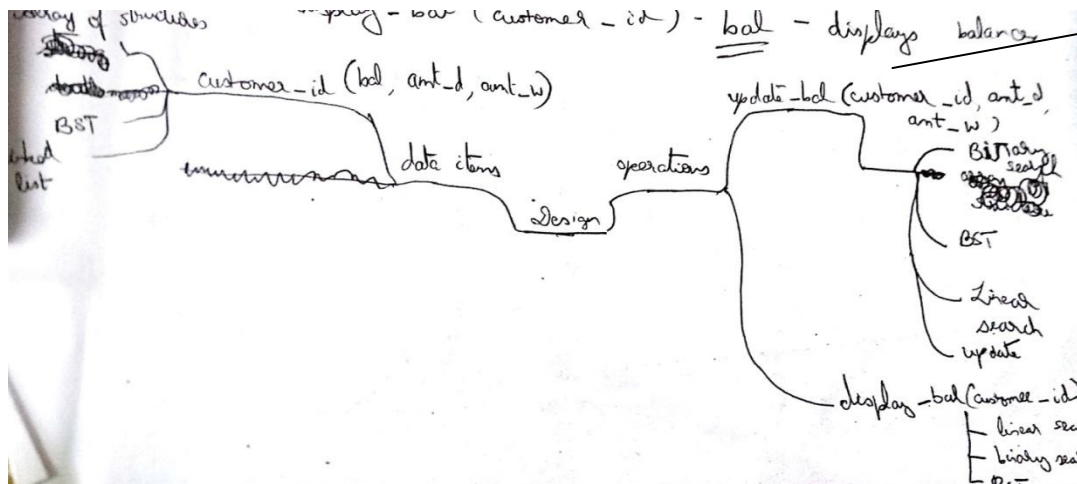 array of structures
display-bal (customer_id) - bal - displays balance
customer_id (bal, amt_d, amt_w)
BST
list
data items
Design
operations
update-bal (customer_id, amt_d,
amt_w)
Binary
search
BST
Linear
search
update
display-bal (customer_id)
linear sea
binary sea
BST